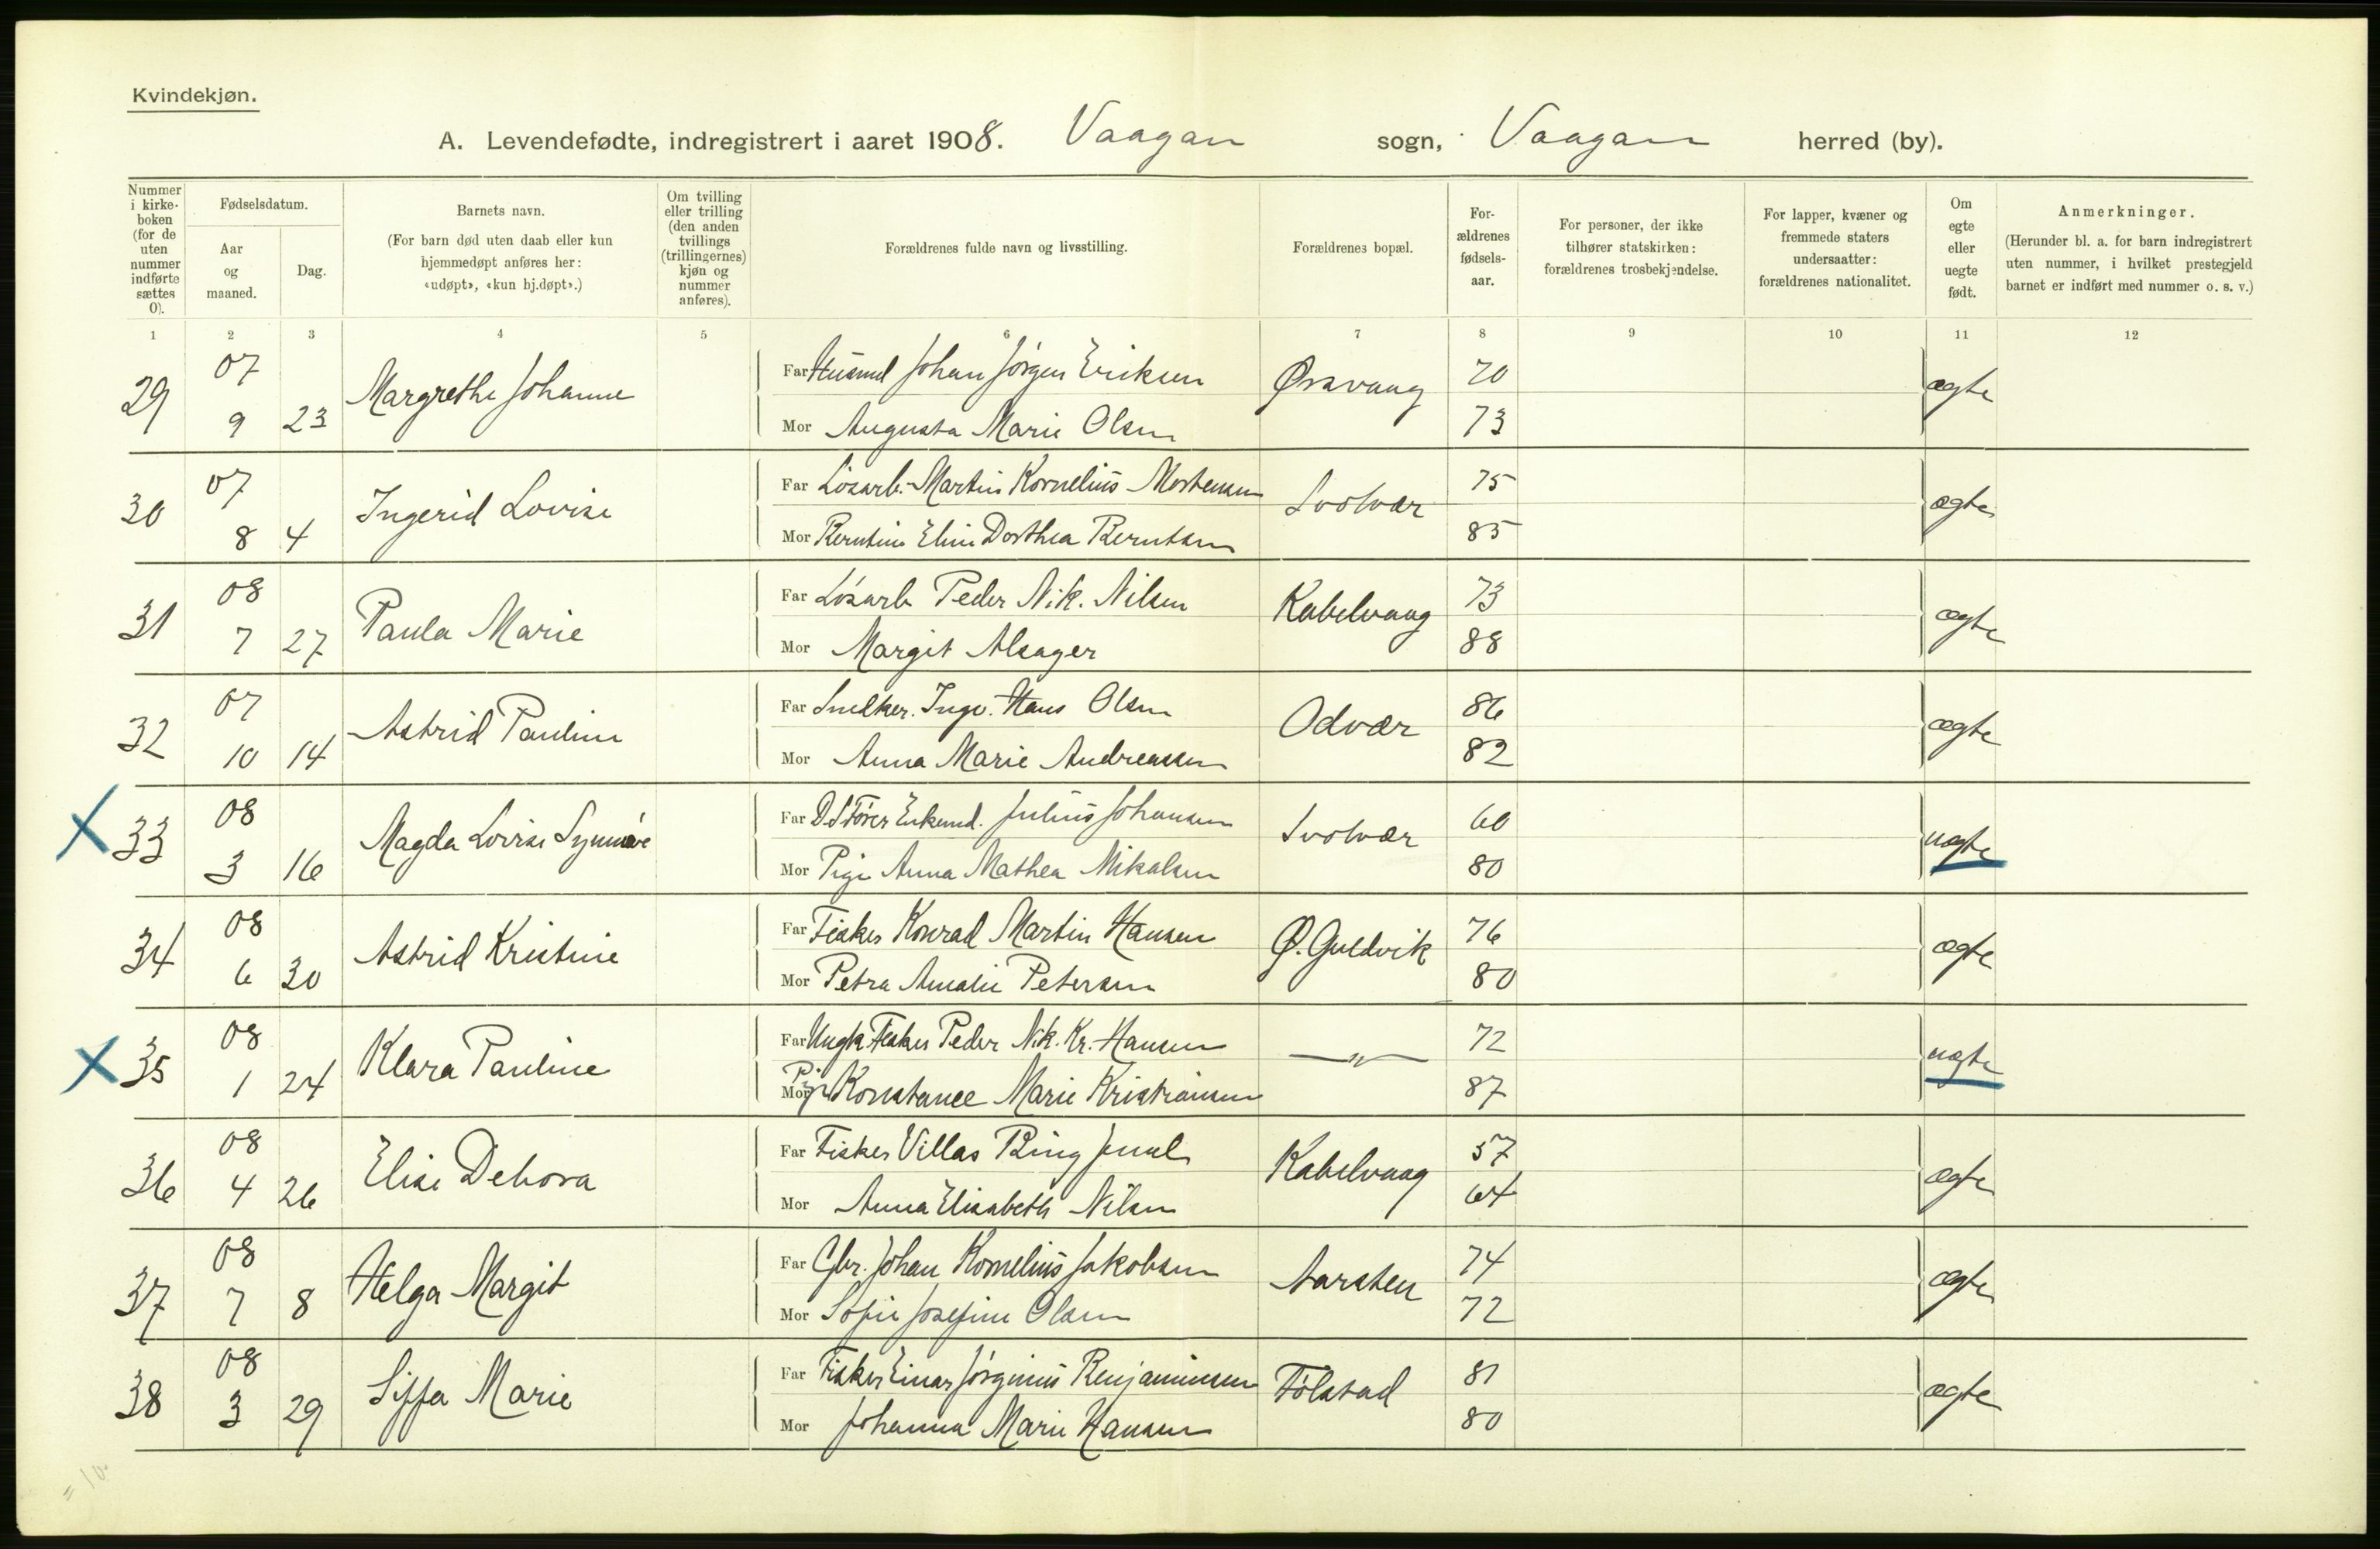 Kvindekjøn.
A. Levendefødte, indregistrert i aaret 1908. Vaagan sogn, Vaagan herred (by).
Nummer i kirke-boken (for de uten nummer indførte sættes 0).
Fødselsdatum.
Aar og maaned.
Dag.
Barnets navn.
(For barn død uten daab eller kun hjemmedøpt anføres her: «udøpt», «kun hj.døpt».)
Om tvilling eller trilling (den anden tvillings (trillingernes) kjøn og nummer anføres).
Forældrenes fulde navn og livsstilling.
Forældrenes bopæl.
For-ældrenes fødsels-aar.
For personer, der ikke tilhører statskirken: forældrenes trosbekjendelse.
For lapper, kvæner og fremmede staters undersaatter: forældrenes nationalitet.
Om egte eller uegte født.
Anmerkninger.
(Herunder bl. a. for barn indregistrert uten nummer, i hvilket prestegjeld barnet er indført med nummer o. s. v.)
1 2 3 4 5 6 7 8 9 10 11 12
29 07 9 23 Margrethe Johanne
Far Husmd Johan Jörgen Eriksen Ørsvaag 70 ægte
Mor Augusta Marie Olsen 73
30 07 8 4 Ingerid Lovise
Far Lösarb. Martin Kornelius Mortensen Svolvær 75 ægte
Mor Berntine Eline Dorthea Berntsen 85
31 08 7 27 Paula Marie
Far Lösarb Peder Nik. Nilsen Kabelvaag 73 ægte
Mor Margit Alsager 88
32 07 10 14 Astrid Pauline
Far Snedker. Ingv. Hans Olsen Odvær 86 ægte
Mor Anna Marie Andreassen 82
X 33 08 3 16 Magda Lovise Synnöve
Far D.S Förer Enkemd. Julius Johansen Svolvær 60 uægte
Mor Pige Anna Mathea Mikalsen 80
34 08 6 30 Astrid Kristine
Far Fisker Konrad Martin Hansen Ø. Guldvik 76 ægte
Mor Petra Amalie Petersen 80
X 35 08 1 24 Klara Pauline
Far Ungk Fisker Peder Nik. Kr. Hansen —"— 72 uægte
Mor Pige Konstance Marie Kristiansen 87
36 08 4 26 Elise Debora
Far Fisker Villas Bing Juul Kabelvaag 57 ægte
Mor Anna Elisabeth Nilsen 64
37 08 7 8 Helga Margit
Far Gbr. Johan Kornelius Jakobsen Aarsten 74 ægte
Mor Sofie Josefine Olsen 72
38 08 3 29 Siffa Marie
Far Fisker Einar Jörginius Benjaminsen Fölstad 81 ægte
Mor Johanna Marie Hansen 80
= 10.